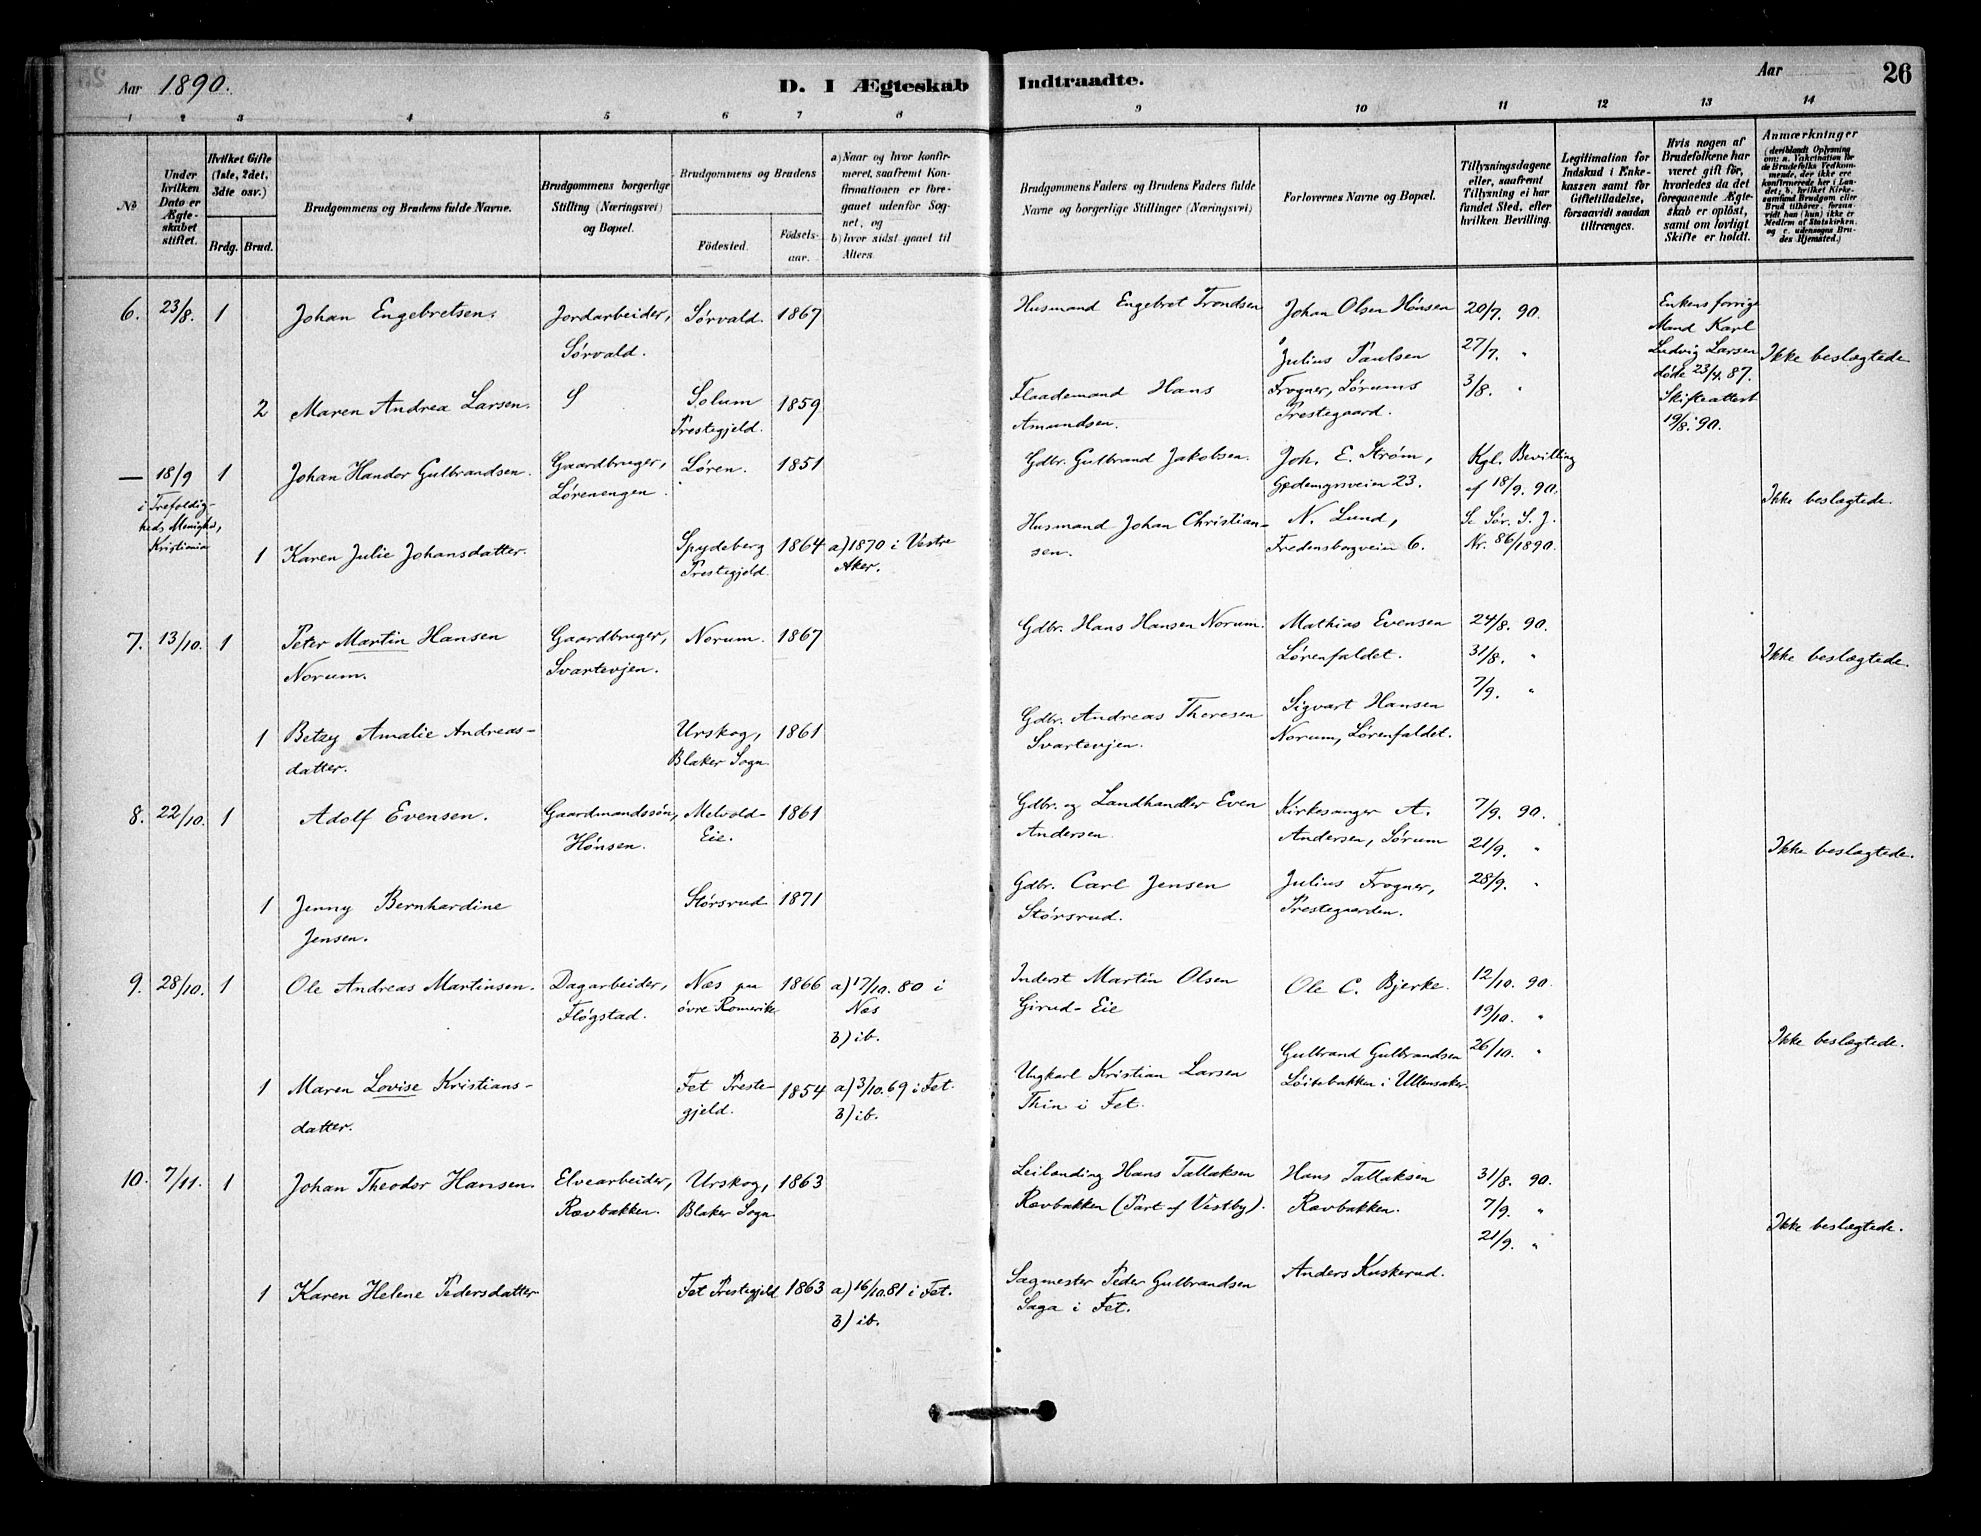 Aar 1890.
D. I Ægteskab Indtraadte.
Aar
26
1 2 3 4 5 6 7 8 9 10 11 12 13 14
No
Under hvilken Dato er Ægteskabet stiftet.
Hvilket Gifte (1ste, 2det, 3dte osv.)
Brdg. Brud.
Brudgommens og Brudens fulde Navne.
Brudgommens borgerlige Stilling (Næringsvei) og Bopæl.
Brudgommens og Brudens
Födested.
Födsels-aar.
a) Naar og hvor konfirmeret, saafremt Konfirmationen er foregaaet udenfor Sognet, og
b) hvor sidst gaaet til Alters.
Brudgommens Faders og Brudens Faders fulde Navne og borgerlige Stillinger (Næringsvei)
Forlovernes Navne og Bopæl.
Tillysningsdagene eller, saafremt Tillysning ei har fundet Sted, efter hvilken Bevilling.
Legitimation for Indskud i Enkekassen samt for Giftetilladelse, forsaavidt saadan tiltrænges.
Hvis nogen af Brudefolkene har været gift för, hvorledes da det foregaaende Ægteskab er oplöst, samt om lovligt Skifte er holdt.
Anmærkninger (deriblandt Oplysning om: a. Vakcination for de Brudefolks Vedkommende, der ikke ere konfirmerede her i Landet; b. hvilket Kirkesamfund Brudgom eller Brud tilhører, forsaavidt han (hun) ikke er Medlem af Statskirken, og c. udensogns Brudes Hjemsted.)
6. 23/8. 1 Johan Engebretsen. Jordarbeider, Sørvald. 1867 Husmand Engebret Trondsen Johan Olsen Hønsen 20/7. 90. Enkens forrige
Sørvald. Julius Paulsen 27/7. " Mand Karl
Ludvig Larsen Ikke beslægtede
2 Maren Andrea Larsen. Solum 1859 Flaademand Hans Frogner, Sørums 3/8. " døde 23/4. 87.
Prestegjeld. Amundsen. Prestegaard. Skifteattest
19/8. 90.
— 18/9 1 Johan Handor Gulbrandsen. Gaardbruger, Løren. 1851 Gdbr. Gulbrand Jakobsen. Joh. E. Strøm, Kgl. Bevilling
i Trefoldig- Lørenengen. 23. af 18/9. 90. Ikke beslægtede.
heds Menighed, Husmand Johan Christian- N. Lund, Se Sør. S. J.
Kristiania 1 Karen Julie Johansdatter. Spydeberg 1864 a) 1870 i Vestre sen. Fredensborgveien 6. Nr. 86/1890.
Prestegjeld. Aker.
7. 13/10. 1 Peter Martin Hansen Gaardbruger, Norum. 1867 Gdbr. Hans Hansen Norum. Mathias Evensen 24/8. 90.
Norum. Svartevjen. Lørenfaldet. 31/8. " Ikke beslægtede.
7/9. "
1 Betzy Amalie Andreas- Urskog, 1861 Gdbr. Andreas Theresen Sigvart Hansen
datter. Blaker Sogn Svartevjen. Norum, Lørenfaldet.
8. 22/10. 1 Adolf Evensen. Gaardmandssøn, Melvold- 1861 Gdbr. og Landhandler Even Kirkesanger A. 7/9. 90.
Hønsen. Eie. Andersen. Andersen, Sørum 21/9. " Ikke beslægtede.
1 Jenny Bernhardine Størsrud 1871 Gdbr. Carl Jensen Julius Frogner, 28/9. "
Jensen. Størsrud. Prestegaarden.
9. 28/10. 1 Ole Andreas Martinsen. Dagarbeider, Næs paa 1866 a) 17/10. 80 i Inderst Martin Olsen Ole C. Bjerke. 12/10. 90.
Fløgstad. øvre Romerike Næs Girud-Eie 19/10. "
b) ib. Ikke beslægtede.
Gulbrand Gulbrandsen 26/10. "
1 Maren Lovise Kristians- Fet Preste- 1854 a) 3/10. 69 i Fet. Ungkarl Kristian Larsen Løitebakken i Ullensaker.
datter. gjeld. b) ib. Thin i Fet.
10. 7/11. 1 Johan Theodor Hansen. Elvearbeider, Urskog, 1863 Leilending Hans Tallaksen Hans Tallaksen 31/8. 90.
Rævbakken. Blaker Sogn Rævbakken (Part af Vestby). Rævbakken. 7/9. "
21/9. " Ikke beslægtede.
1 Karen Helene Pedersdatter Fet Prestegjeld 1863 a) 16/10. 81 i Fet. Sagmester Peder Gulbrandsen Anders Kuskerud.
b) ib. Saga i Fet.